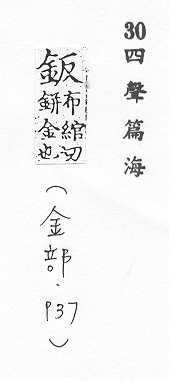 30四聲篇海
鈑
布綰切
鉼金也
（金部．P37）